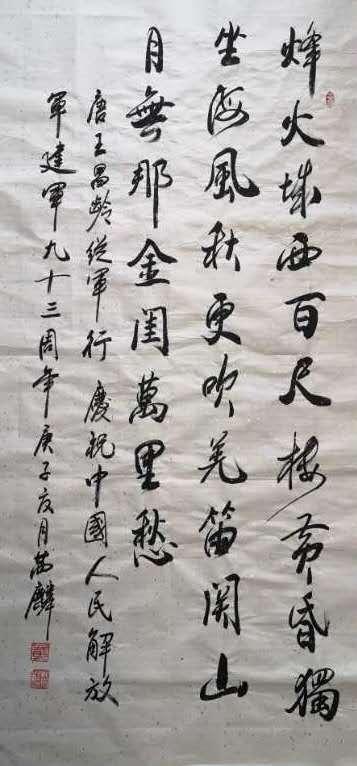 烽火城西百尺楼黄昏獨
坐海風秋更吹羌笛関山
月無那金閨萬里愁
唐王昌齡從軍行 慶祝中國人民解放
軍建軍九十三周年庚子夏月嵩麟